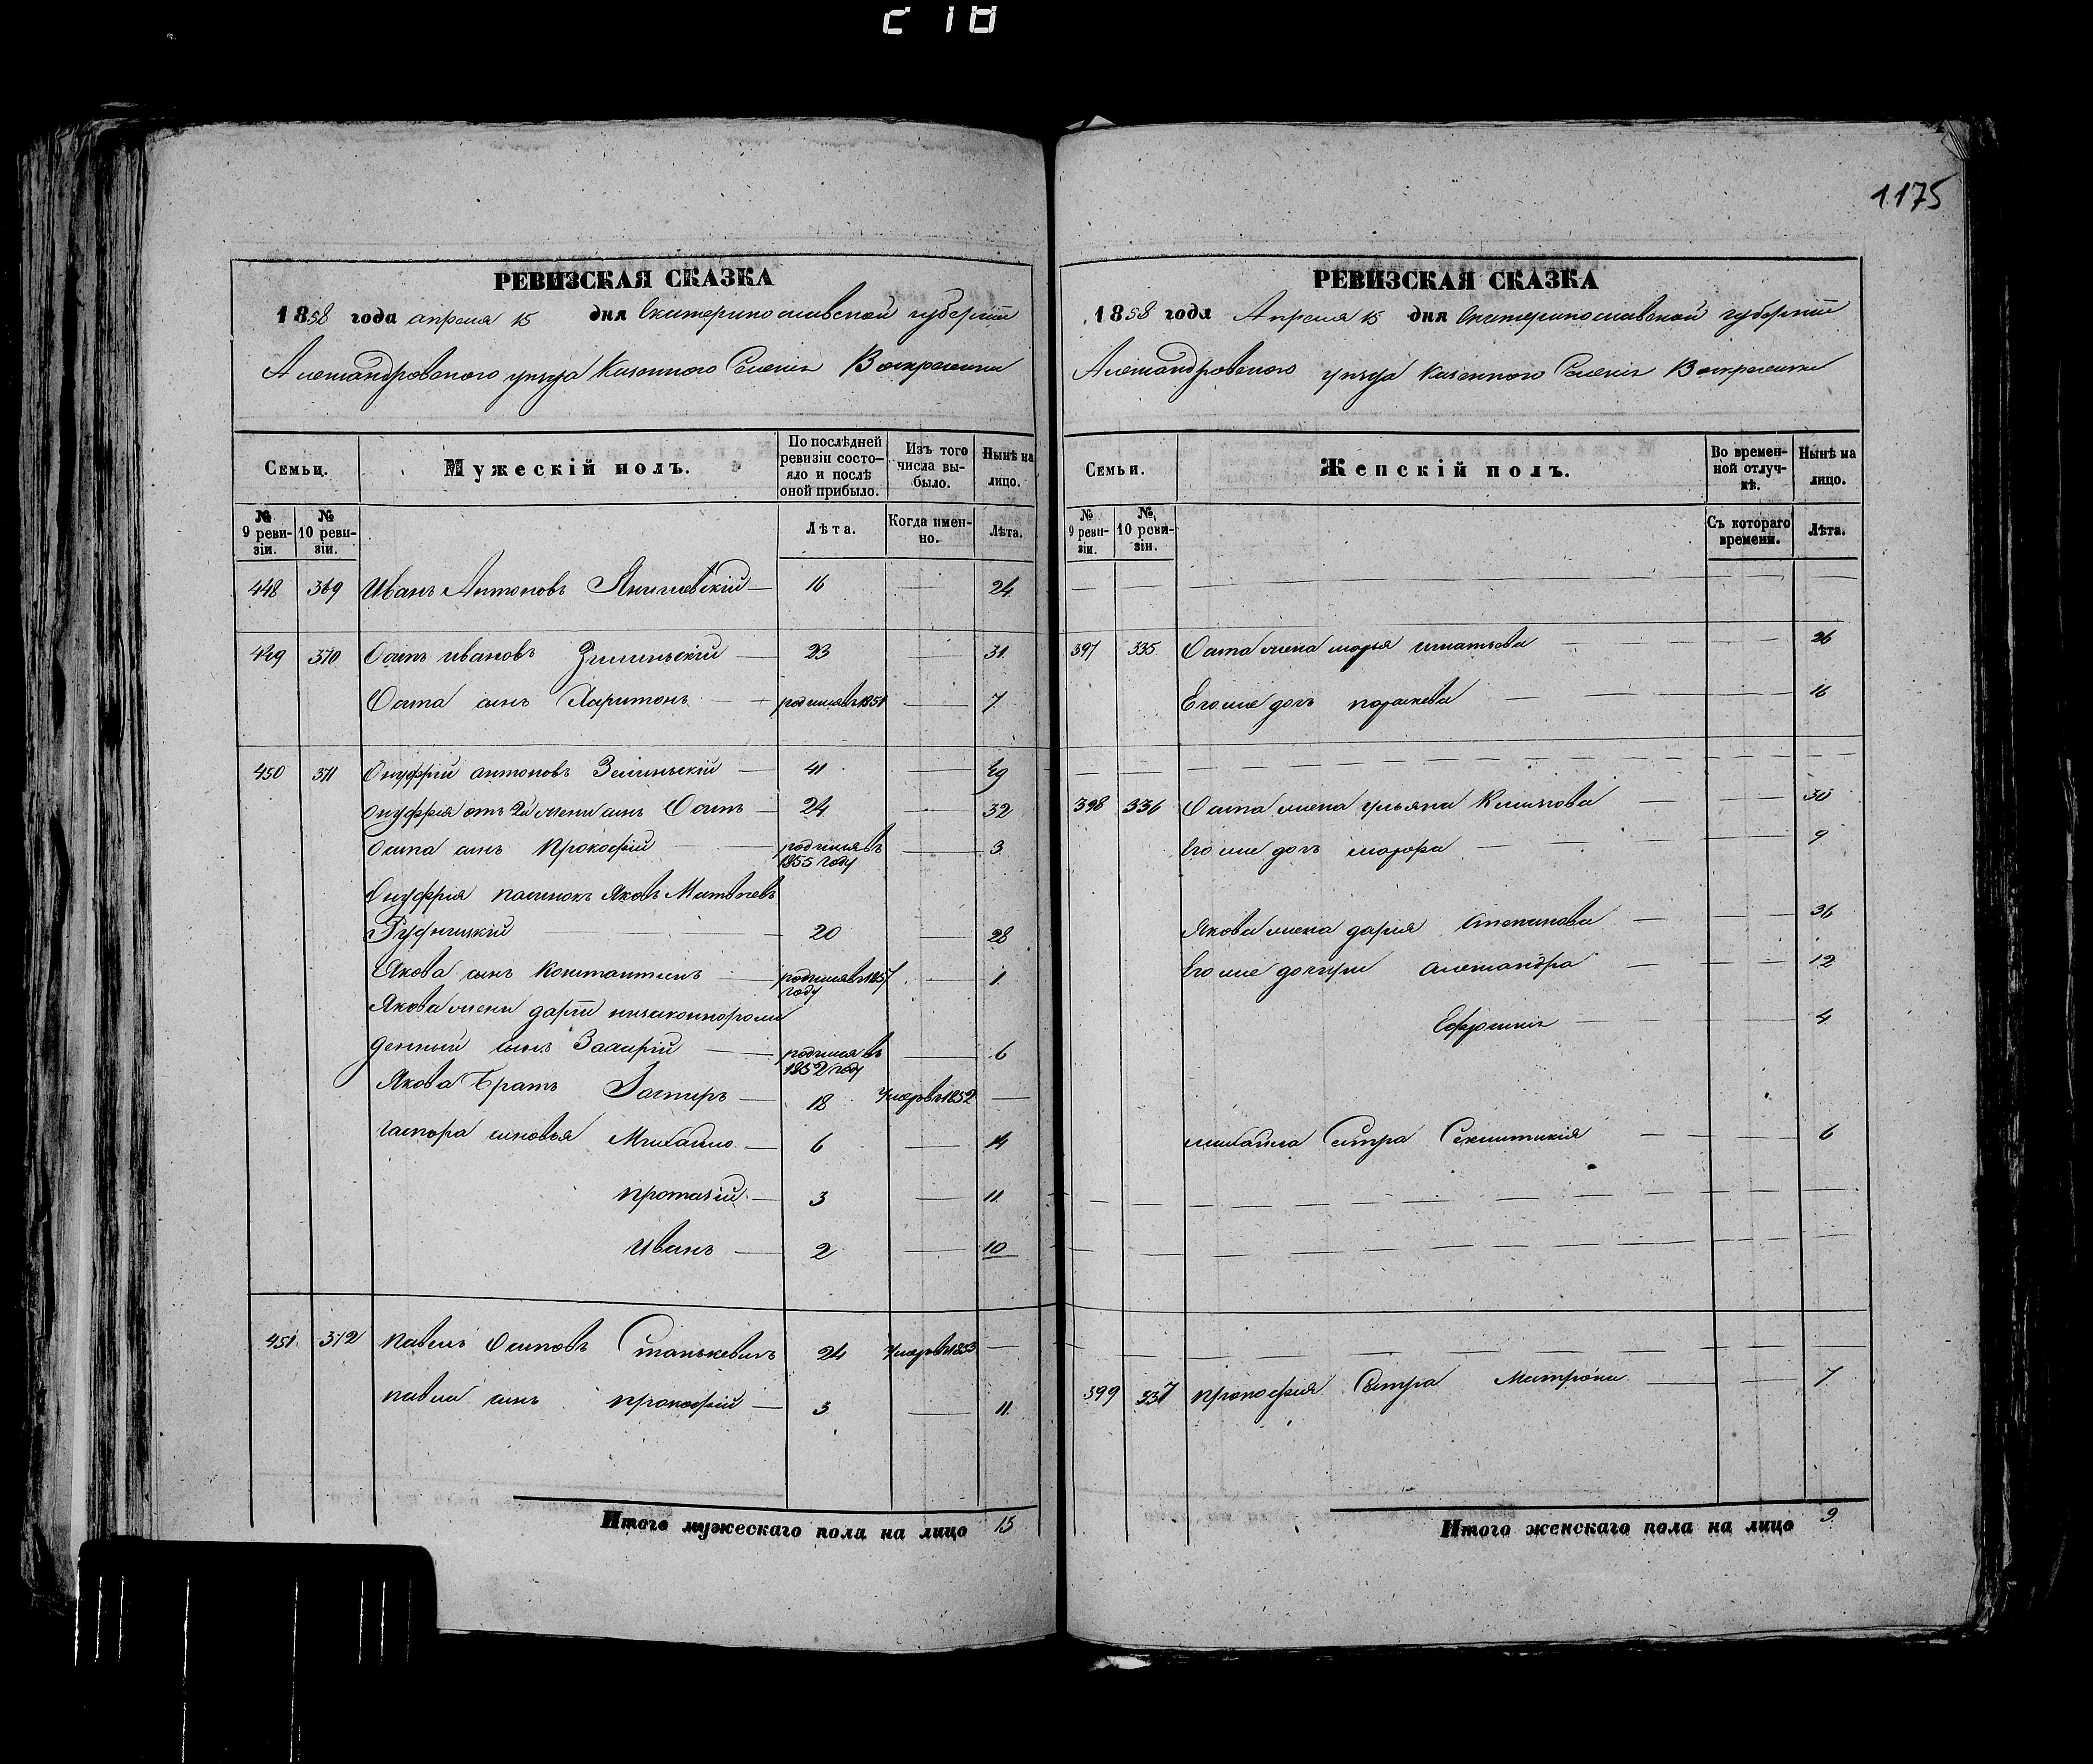 218
1175
РЕВИЗСКАЯ СКАЗКА
1858 года апреля 15 дня Екатеринославской губернiи
Александровского уезда Казенного Селенiя Воскресенки
Семьи.
Мужескій полъ.
По послѣдней ревизіи состояло и послѣ оной прибыло.
Изъ того числа выбыло.
Нынѣ на лицо.
№ 9 ревизіи.
№ 10 ревизіи.
Лѣта.
Когда именно.
Лѣта.
448 369 Иванъ Антоновъ 16 — 24
449 370 Осипъ Ивановъ Зилинскій — 23 — 31
Осипа сынъ Харитонъ — родился въ 1851 — 7
450 371 Онуфрій антоновъ Зелинскій — 41 — 49
Онуфрія отъ 2й жены сынъ Осипъ — 24 — 32
Осипа сынъ Прокофій — родился въ 1855 году — 3
Онуфрія пасинокъ Яковъ Матвѣевъ
Рудницкій — 20 — 28
Якова сынъ Константинъ — родился въ 1857 году — 1
Якова жены дарiи низаконнорож
денный сынъ Захарій — родился въ 1852 году — 6
Якова Братъ — 18 Умеръ въ 1852 —
сыновья Михайло — 6 — 14
протасій — 3 — 11
Иванъ — 2 — 10
451 372 Павелъ Осиповъ Станкевичь 24 Умеръ въ 1853 —
павла сынъ прокофій — 3 — 11
Итого мужескаго пола на лицо 15
РЕВИЗСКАЯ СКАЗКА
1858 года Апреля 15 дня Екатеринославской губернiи
Александровского уезда Казенного Селенiя Воскресенки
Семьи.
Женскій полъ.
Во временной отлучкѣ.
Нынѣ на лицо.
№ 9 ревизіи.
№ 10 ревизіи.
Съ котораго времени.
Лѣта.
397 335 Осипа жена марья игнатьева — 26
Его же дочь параскева — 16
398 336 Осипа жена ульяна Климова — 30
Его же дочь — 9
Якова жена дария Степанова — 36
Его же дочери александра — 12
Ефросинiя — 4
михайла Сестра — 6
399 337 прокофия Сестра Матрона — 7
Итого женскаго пола на лицо 9